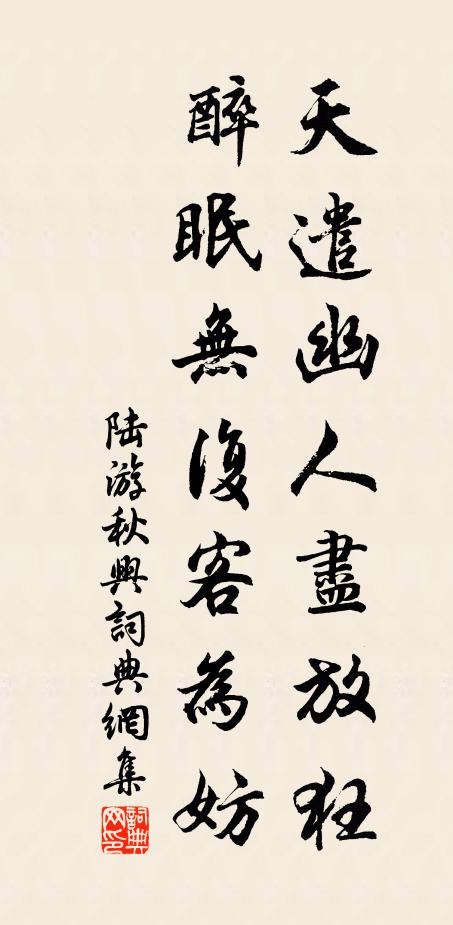 天遣幽人盡放狂
醉眠無復客為妨
陸游秋興詞典網集
詞典網印